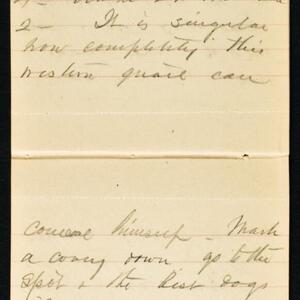 2 - It is singular
how completely this
western quail can
conceal himself - Mark
a covey down go to the
spot & the best dogs